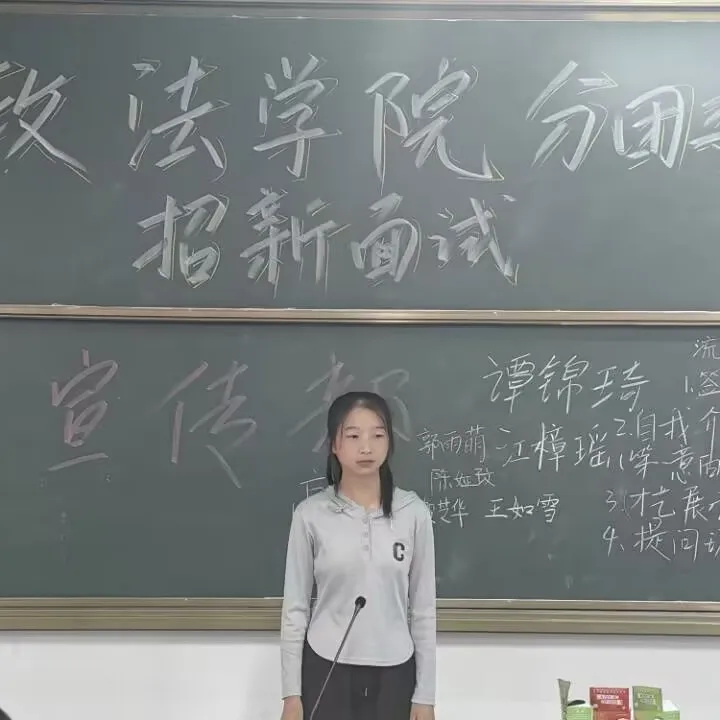 政法学院分团
招新面试
宣传部
谭锦琦
郭雨萌 江樟瑶
陈娅玫
楚华 王如雪
流
1.签
2.自我介
(1.笨.意向
3.才艺展
4.提问环
C